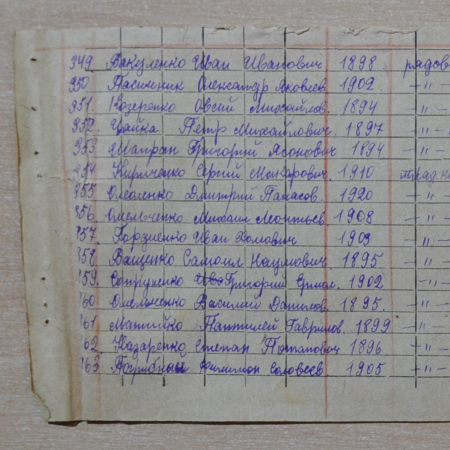 349. Бакуленко Иван Иванович 1898. рядов
350 Пасишник Александр Яковлев. 1902 -"-
351. Козеренко Овсий Михайлов. 1894 -"-
352. Чайка Петр Михайлович. 1897 -"-
353 Шапран Григорий Яковович 1894 -"-
354 Кириченко Сергий Макарович. 1910
355 Омеленко Дмитрий Панасов. 1920 -"-
356. Омельченко Михаил Леонтьев 1908 -"-
357. Иван Хомович 1903 -"-
358. Ващенко Самоил Наумович 1895 -"-
359. Григорий Ермол. 1902 -"-
360 Омельченко Василий Данилов 1895. -"-
361 Матвийко Пантилей Гаврилов. 1899 -"-
362 Назаренко Степан Потапович 1896 -"-
363 Погрибный Филимон Соловеев. 1905 -"-